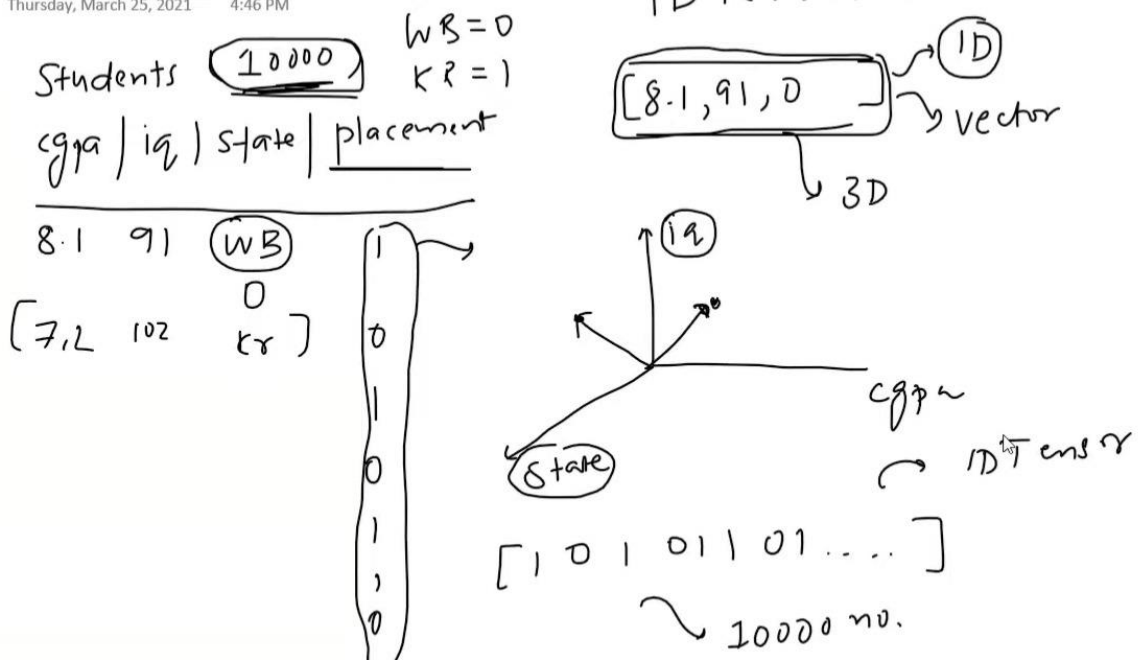 Thursday, March 25, 2021 4:46 PM
WB = 0
KR = 1
Students 10000
cgpa | iq | state | placement
8.1 91 WB 1
0
[7.2 102 Kr] 0
1
0
1
1
0
[8.1, 91, 0 ]
1D
vector
3D
iq
cgpa
state
1D Tensor
[1 0 1 01 1 01.....]
10000 no.